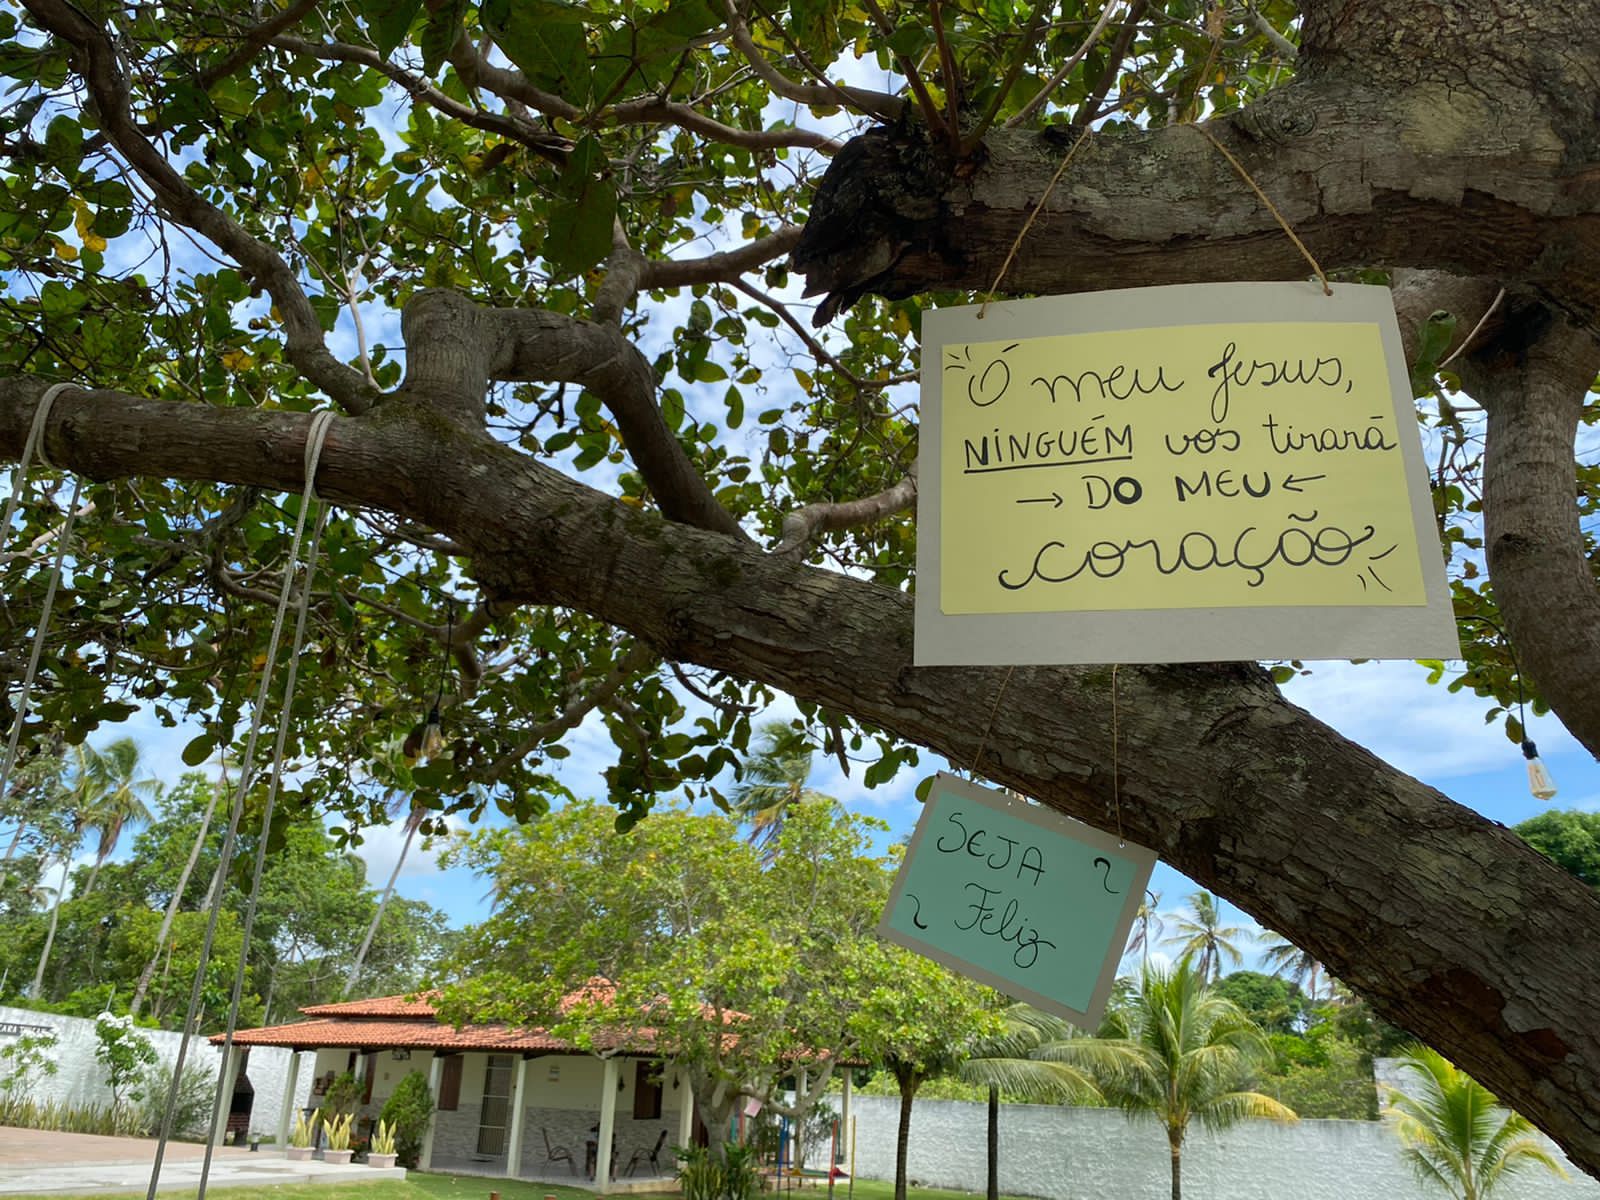 Ó meu Jesus,
NINGUÉM vos tirará
→ DO MEU ←
coração
SEJA
Feliz